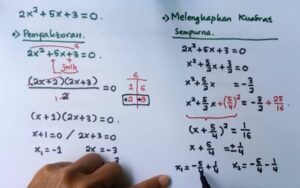 2x² + 5x + 3 = 0.
» Pemfaktoran.
6
2x² + 5x + 3 = 0.
(2x+2)(2x+3) = 0
2
6
1 6
2 3
(x+1)(2x+3) = 0.
x+1=0 / 2x+3=0
x₁ = -1 2x = -3
» Melengkapkan Kuadrat
Sempurna.
2x² + 5x + 3 = 0
x² + 5/2 x + 3/2 = 0
x² + 5/2 x = -3/2
x² + 5/2 x + (5/4)² = -3/2 + 25/16
(x + 5/4)² = 1/16
x + 5/4 = ± 1/4
x₁ = -5/4 + 1/4 x₂ = -5/4 - 1/4